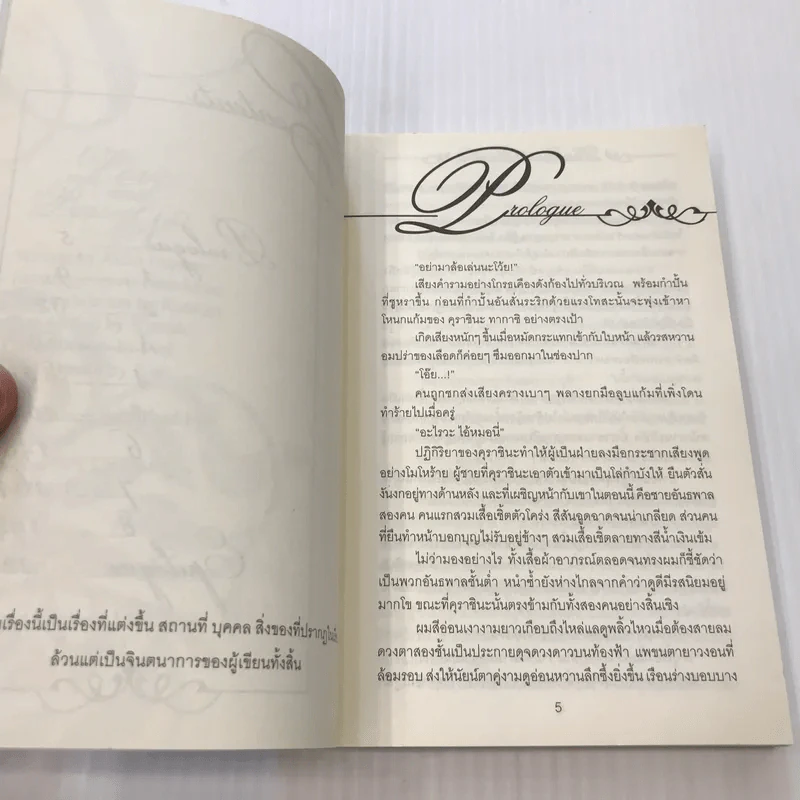 เรื่องนี้เป็นเรื่องที่แต่งขึ้น สถานที่ บุคคล สิ่งของที่ปรากฏ
ล้วนแต่เป็นจินตนาการของผู้เขียนทั้งสิ้น
Prologue
“อย่ามาล้อเล่นนะโว้ย!”
เสียงคำรามอย่างโกรธเคืองดังก้องไปทั่วบริเวณ พร้อมกำปั้น
ที่ชูหราขึ้น ก่อนที่กำปั้นอันสั่นระริกด้วยแรงโทสะนั้นจะพุ่งเข้าหา
โหนกแก้มของ คุราชินะ ทากาชิ อย่างตรงเป้า
เกิดเสียงหนักๆ ขึ้นเมื่อหมัดกระแทกเข้ากับใบหน้า แล้วรสหวาน
อมปร่าของเลือดก็ค่อยๆ ซึมออกมาในช่องปาก
“โอ๊ย...!”
คนถูกชกส่งเสียงครางเบาๆ พลางยกมือลูบแก้มที่เพิ่งโดน
ทำร้ายไปเมื่อครู่
“อะไรวะ ไอ้หมอนี่”
ปฏิกิริยาของคุราชินะทำให้ผู้เป็นฝ่ายลงมือกระชากเสียงพูด
อย่างโมโหร้าย ผู้ชายที่คุราชินะเอาตัวเข้ามาเป็นโล่กำบังให้ ยืนตัวสั่น
งันงกอยู่ทางด้านหลัง และที่เผชิญหน้ากับเขาในตอนนี้ คือชายอันธพาล
สองคน คนแรกสวมเสื้อเชิ้ตตัวโคร่ง สีสันฉูดฉาดจนน่าเกลียด ส่วนคน
ที่ยืนทำหน้าบอกบุญไม่รับอยู่ข้างๆ สวมเสื้อเชิ้ตลายทางสีน้ำเงินเข้ม
ไม่ว่ามองอย่างไร ทั้งเสื้อผ้าอาภรณ์ตลอดจนทรงผมก็ชี้ชัดว่า
เป็นพวกอันธพาลชั้นต่ำ หนำซ้ำยังห่างไกลจากคำว่าดูดีมีรสนิยมอยู่
มากโข ขณะที่คุราชินะนั้นตรงข้ามกับทั้งสองคนอย่างสิ้นเชิง
ผมสีอ่อนเงางามยาวเกือบถึงไหล่แลดูพลิ้วไหวเมื่อต้องสายลม
ดวงตาสองชั้นเป็นประกายดุจดวงดาวบนท้องฟ้า แพขนตายาวงอนที่
ล้อมรอบ ส่งให้นัยน์ตาคู่งามดูอ่อนหวานลึกซึ้งยิ่งขึ้น เรือนร่างบอบบาง
5